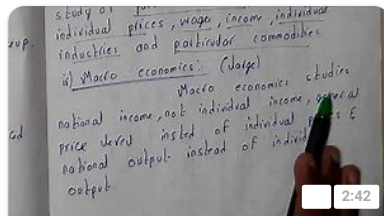 study of
individual prices, wages, income, individual
industries and particular commodities
eup.
ii) Macro economics: (large)
Macro economics studies
national income, not individual income, general
price level insted of individual &
national output instead of
output.
2:42